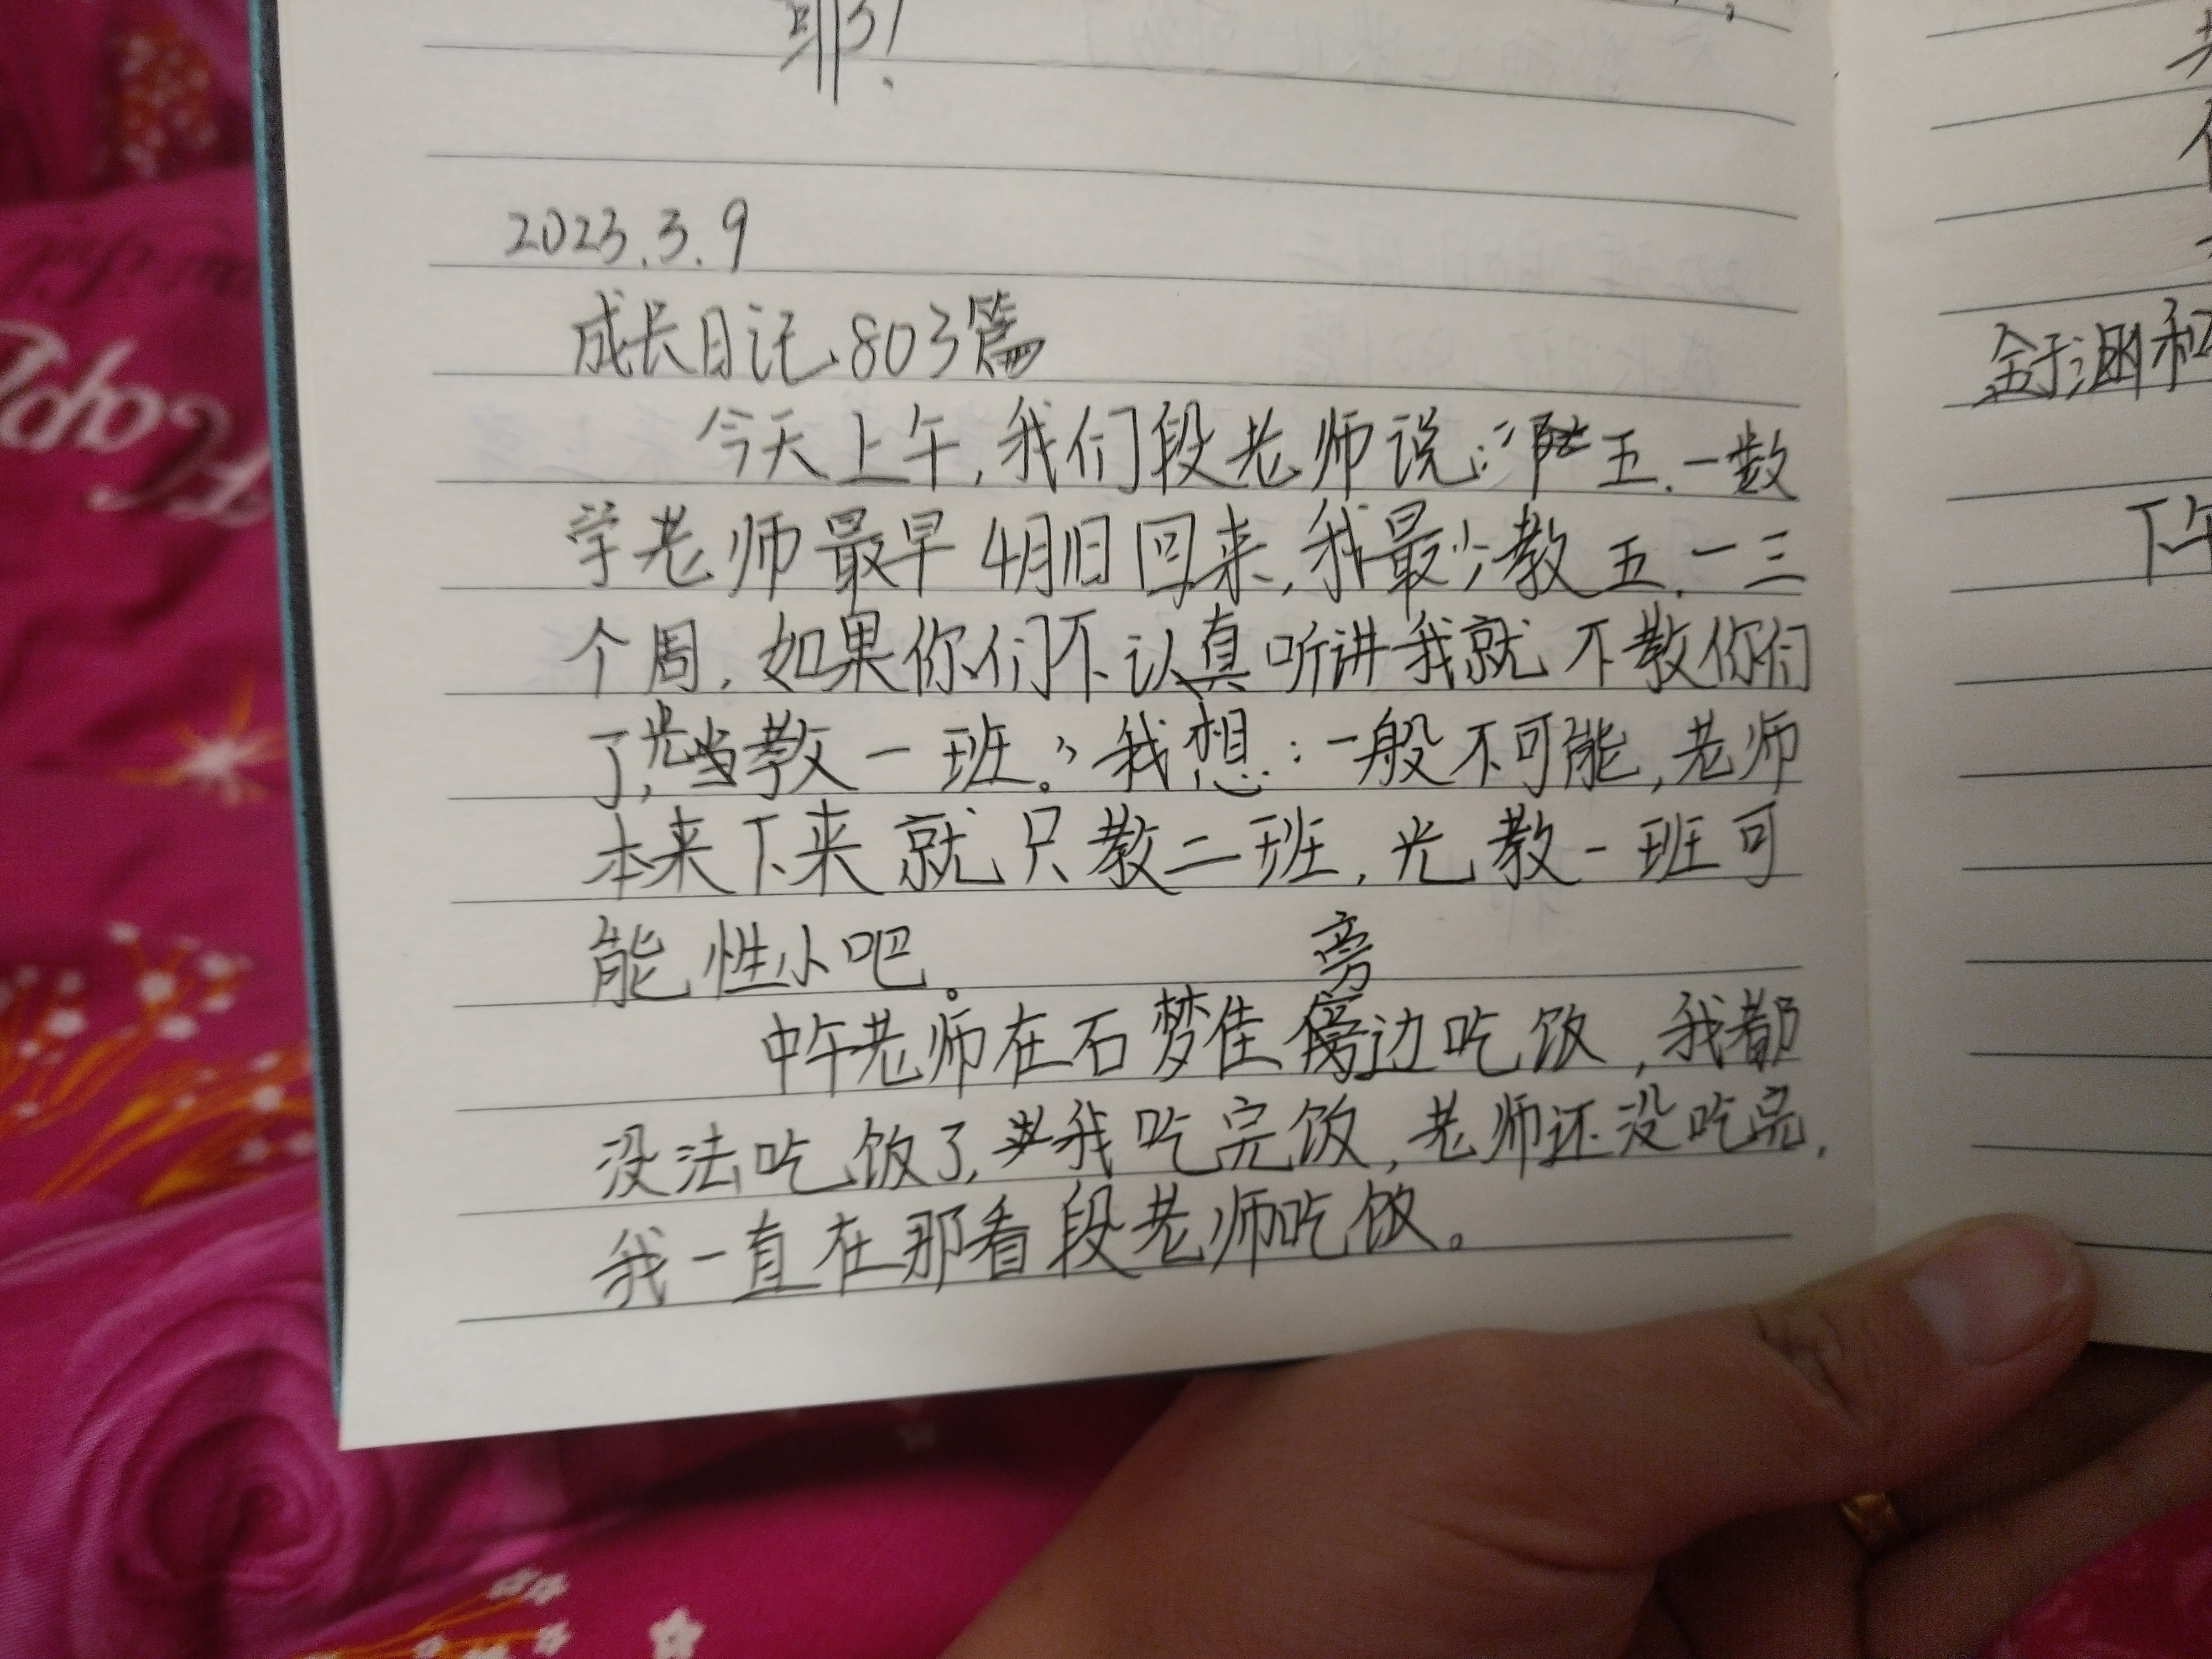 耶!
2023.3.9
成长日记803篇
今天上午,我们段老师说:“五.一数
学老师最早4月1日回来,我最少教五.一三
个周,如果你们不认真听讲我就不教你们
了,光教一班。”我想:一般不可能,老师
本来下来就只教二班,光教一班可
能性小吧。
中午老师在石梦佳旁边吃饭,我都
没法吃饭了,我吃完饭,老师还没吃完,
我一直在那看段老师吃饭。
涵和
下午